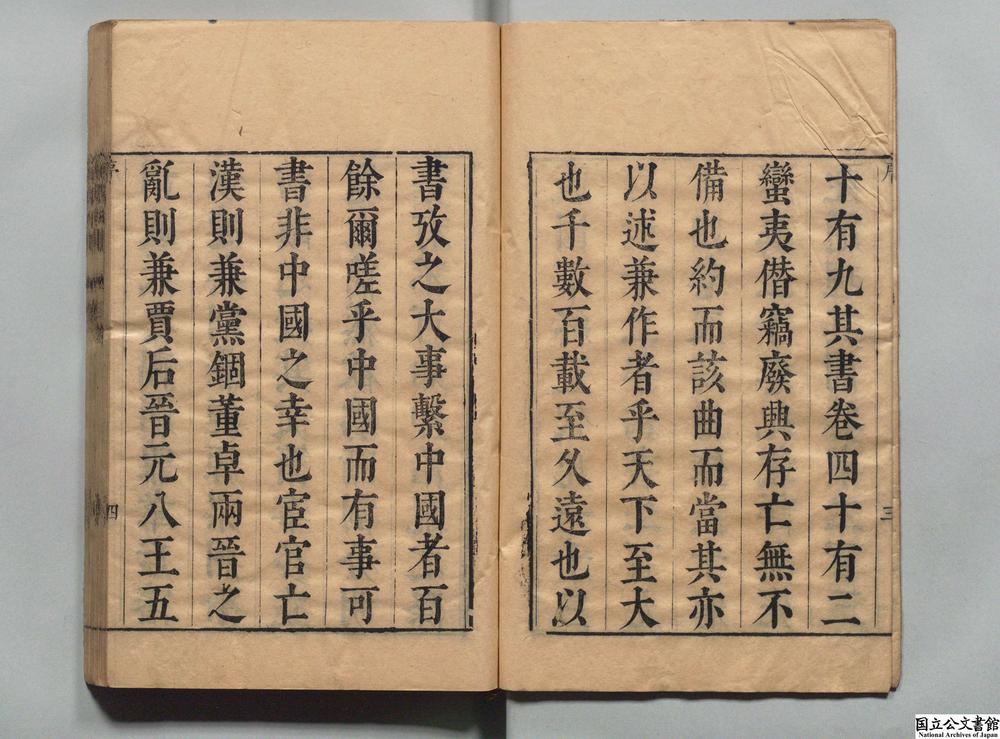 十有九其書卷四十有二
蠻夷僭竊廢興存亡無不
備也約而該曲而當其亦
以述兼作者乎天下至大
也千數百載至久遠也以
三
書攷之大事繫中國者百
餘爾嗟乎中國而有事可
書非中國之幸也宦官亡
漢則兼黨錮董卓兩晉之
亂則兼賈后晉元八王五
序
四
国立公文書館
National Archives of Japan